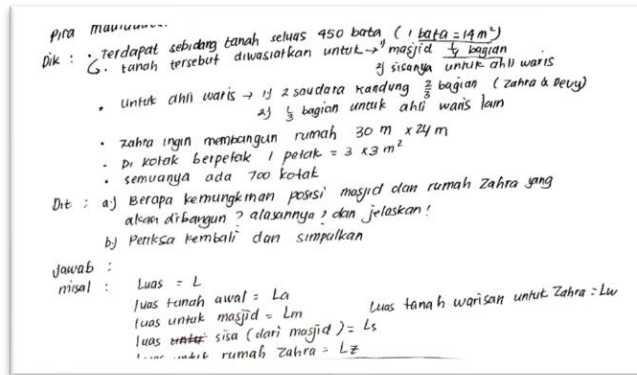 Pira
Dik : • Terdapat sebidang tanah seluas 450 bata (1 bata = 14 m²)
G. tanah tersebut diwasiatkan untuk → 1) masjid 1/4 bagian
2) sisanya untuk ahli waris
• Untuk ahli waris → 1) 2 saudara kandung 2/3 bagian (Zahra & Devy)
2) 1/3 bagian untuk ahli waris lain
• Zahra ingin membangun rumah 30 m x 24 m
• Di kotak berpetak 1 petak = 3 x 3 m²
• semuanya ada 700 kotak
Dit : a) Berapa kemungkinan posisi masjid dan rumah Zahra yang
akan dibangun ? alasannya ? dan jelaskan !
b) Periksa kembali dan simpulkan
Jawab :
misal : Luas = L
luas tanah awal = La
luas untuk masjid = Lm Luas tanah warisan untuk Zahra : Lw
luas untuk sisa (dari masjid) = Ls
rumah Zahra = Lz